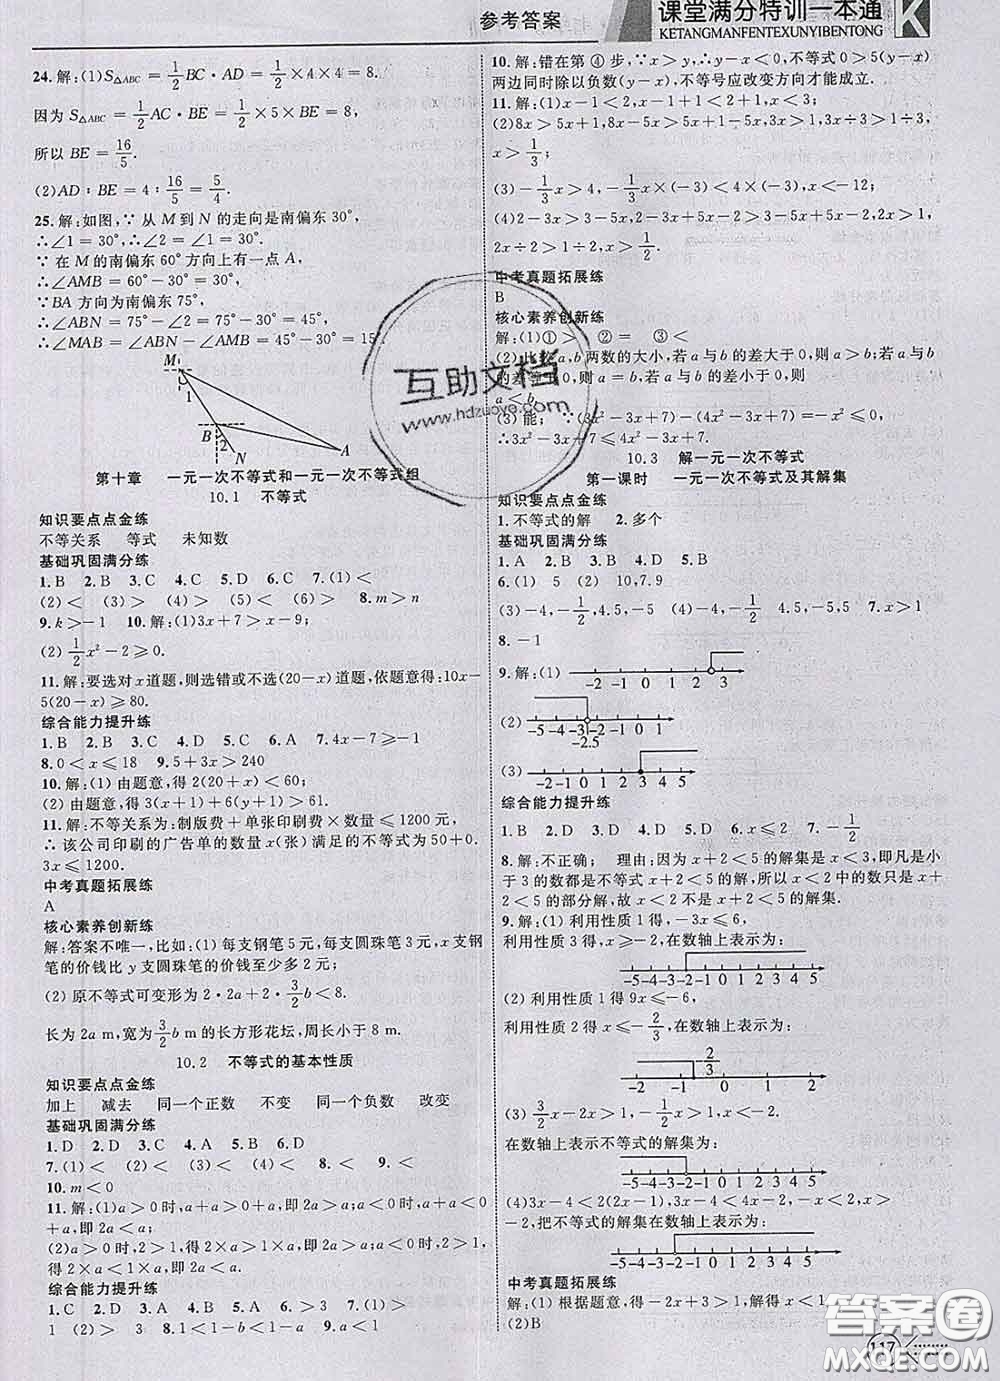 参考答案
课堂满分特训一本通
KETANGMANFENTEXUNYIBENTONG
K
24.解:(1)S△ABC=1/2BC·AD=1/2×4×4=8.
因为 S△ABC=1/2AC·BE=1/2×5×BE=8,
所以 BE=16/5.
(2)AD∶BE=4∶16/5=5/4.
25.解:如图,∵从M到N的走向是南偏东30°,
∴∠1=30°,∴∠2=∠1=30°.
∵在M的南偏东60°方向上有一点A,
∴∠AMB=60°-30°=30°.
∵BA方向为南偏东75°,
∴∠ABN=75°-∠2=75°-30°=45°,
∴∠MAB=∠ABN-∠AMB=45°-30°=15°.
M
1
B
2
N
A
第十章 一元一次不等式和一元一次不等式组
10.1 不等式
知识要点点金练
不等关系 等式 未知数
基础巩固满分练
1.B 2.B 3.C 4.C 5.D 6.C 7.(1)>
(2)< (3)> (4)> (5)< (6)> 8.m>n
9.k>-1 10.解:(1)3x+7>x-9;
(2)1/2x²-2≥0.
11.解:要选对x道题,则选错或不选(20-x)道题,依题意得:10x-
5(20-x)≥80.
综合能力提升练
1.B 2.B 3.C 4.D 5.C 6.A 7.4x-7≥-1
8.0<x≤18 9.5+3x>240
10.解:(1)由题意,得2(20+x)<60;
(2)由题意,得3(x+1)+6(y+1)>61.
11.解:不等关系为:制版费+单张印刷费×数量≤1200元,
∴该公司印刷的广告单的数量x(张)满足的不等式为50+0.
3x≤1200.
中考真题拓展练
A
核心素养创新练
解:答案不唯一,比如:(1)每支钢笔5元,每支圆珠笔3元,x支钢
笔的价钱比y支圆珠笔的价钱至少多2元;
(2)原不等式可变形为2·2a+2·3/2b<8.
长为2a m,宽为3/2b m的长方形花坛,周长小于8 m.
10.2 不等式的基本性质
知识要点点金练
加上 减去 同一个正数 不变 同一个负数 改变
基础巩固满分练
1.D 2.D 3.C 4.A 5.B 6.D
7.(1)< (2)< (3)> (4)> 8.< 9.<
10.m<0
11.解:(1)a>0时,a+a>0+a,即2a>a;a<0时,a+a<0
+a,即2a<a;
(2)a>0时,2>1,得2×a>1×a,即2a>a;a<0时,2>1,
得2×a<1×a,即2a<a.
综合能力提升练
1.C 2.D 3.D 4.B 5.C 6.D 7.(1)>
1 (2)> 3 8.1-√2 9.-2 10.(1)>
10.解:错在第④步,∵x>y,∴y-x<0,不等式5(y-x)>
两边同时除以负数(y-x),不等号应改变方向才能成立.
11.解:(1)x-1<2,x-1+1<2+1,x<3;
(2)8x>5x+1,8x-5x>5x+1-5x,3x>1,3x÷3>1÷3,
x>1/3;
(3)-1/3x>4,-1/3x×(-3)<4×(-3),x<-12;
(4)2-3x>3-5x,2-3x+5x-2>3-5x+5x-2,2x>1,
2x÷2>1÷2,x>1/2.
中考真题拓展练
B
核心素养创新练
解:(1)①> ②= ③<
(2)比较a,b两数的大小,若a与b的差大于0,则a>b;若a与b
的差等于0,则a=b,若a与b的差小于0,则
a<b.
(3)能;∵(3x²-3x+7)-(4x²-3x+7)=-x²≤0,
∴3x²-3x+7≤4x²-3x+7.
10.3 解一元一次不等式
第一课时 一元一次不等式及其解集
知识要点点金练
1.不等式的解 2.多个
基础巩固满分练
1.A 2.B 3.C 4.D 5.B
6.(1) 5 (2) 10,7.9
(3)-4,-1/2,4.5,-5 (4)-4,-1/2 4.5,-5.5 7.x>1
8.-1
9.解:(1)
-2 -1 0 1 2 3
(2)
-5 -4 -3 -2 -1 0 1
-2.5
(3)
-2 -1 0 1 2 3 4 5
综合能力提升练
1.B 2.D 3.D 4.D 5.B 6.x≤2 7.-1/2
8.解:不正确; 理由:因为x+2<5的解集是x<3,即凡是小
于3的数都是不等式x+2<5的解,所以x<2中的数只是x
+2<5的部分解,故x<2不是x+2<5的解集.
9.解:(1)利用性质1得,-3x≤6,
利用性质3得,x≥-2,在数轴上表示为:
-5 -4 -3 -2 -1 0 1 2 3 4 5
(2)利用性质1得9x≤-6,
利用性质2得x≤-2/3,在数轴上表示为:
-2/3
-2 -1 0 1 2 3 4
(3)3/2x-2x>1,-1/2x>1,x<-2,
在数轴上表示不等式的解集为:
-5 -4 -3 -2 -1 0 1 2 3 4 5
(4)3x-4<2(2x-1),3x-4<4x-2,3x-4x<4-2,x>
-2,把不等式的解集在数轴上表示为:
-5 -4 -3 -2 -1 0 1 2 3 4 5
中考真题拓展练
解:(1)根据题意,得
(2)B
117
互助文档
www.hdzuoye.com
答案圈
MXQE.COM